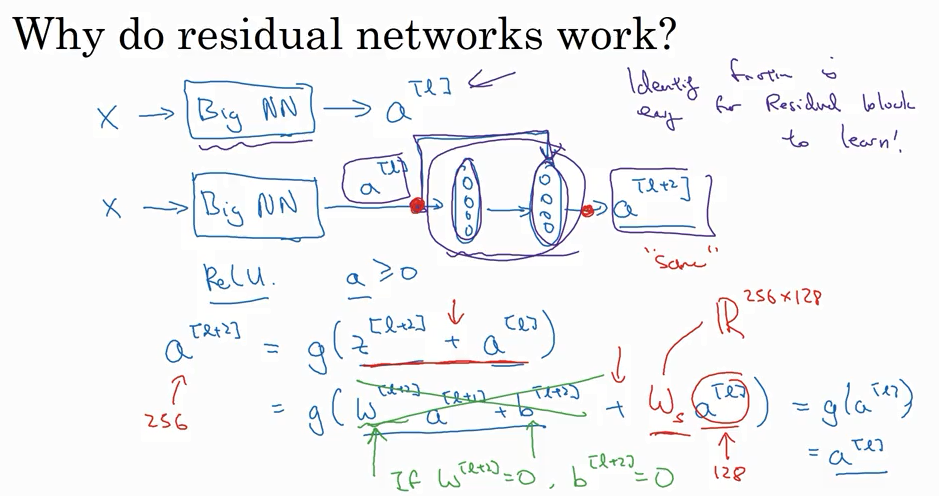 Why do residual networks work?
X → Big NN → a^[l]
Identity function is
easy for Residual block
to learn!
X → Big NN a^[l] → a^[l+2]
"same"
ReLU. a ≥ 0
a^[l+2] = g(z^[l+2] + a^[l])
ℝ^256×128
256
= g(W^[l+2] a^[l+1] + b^[l+2] + W_s a^[l]) = g(a^[l])
= a^[l]
If W^[l+2]=0, b^[l+2]=0
128